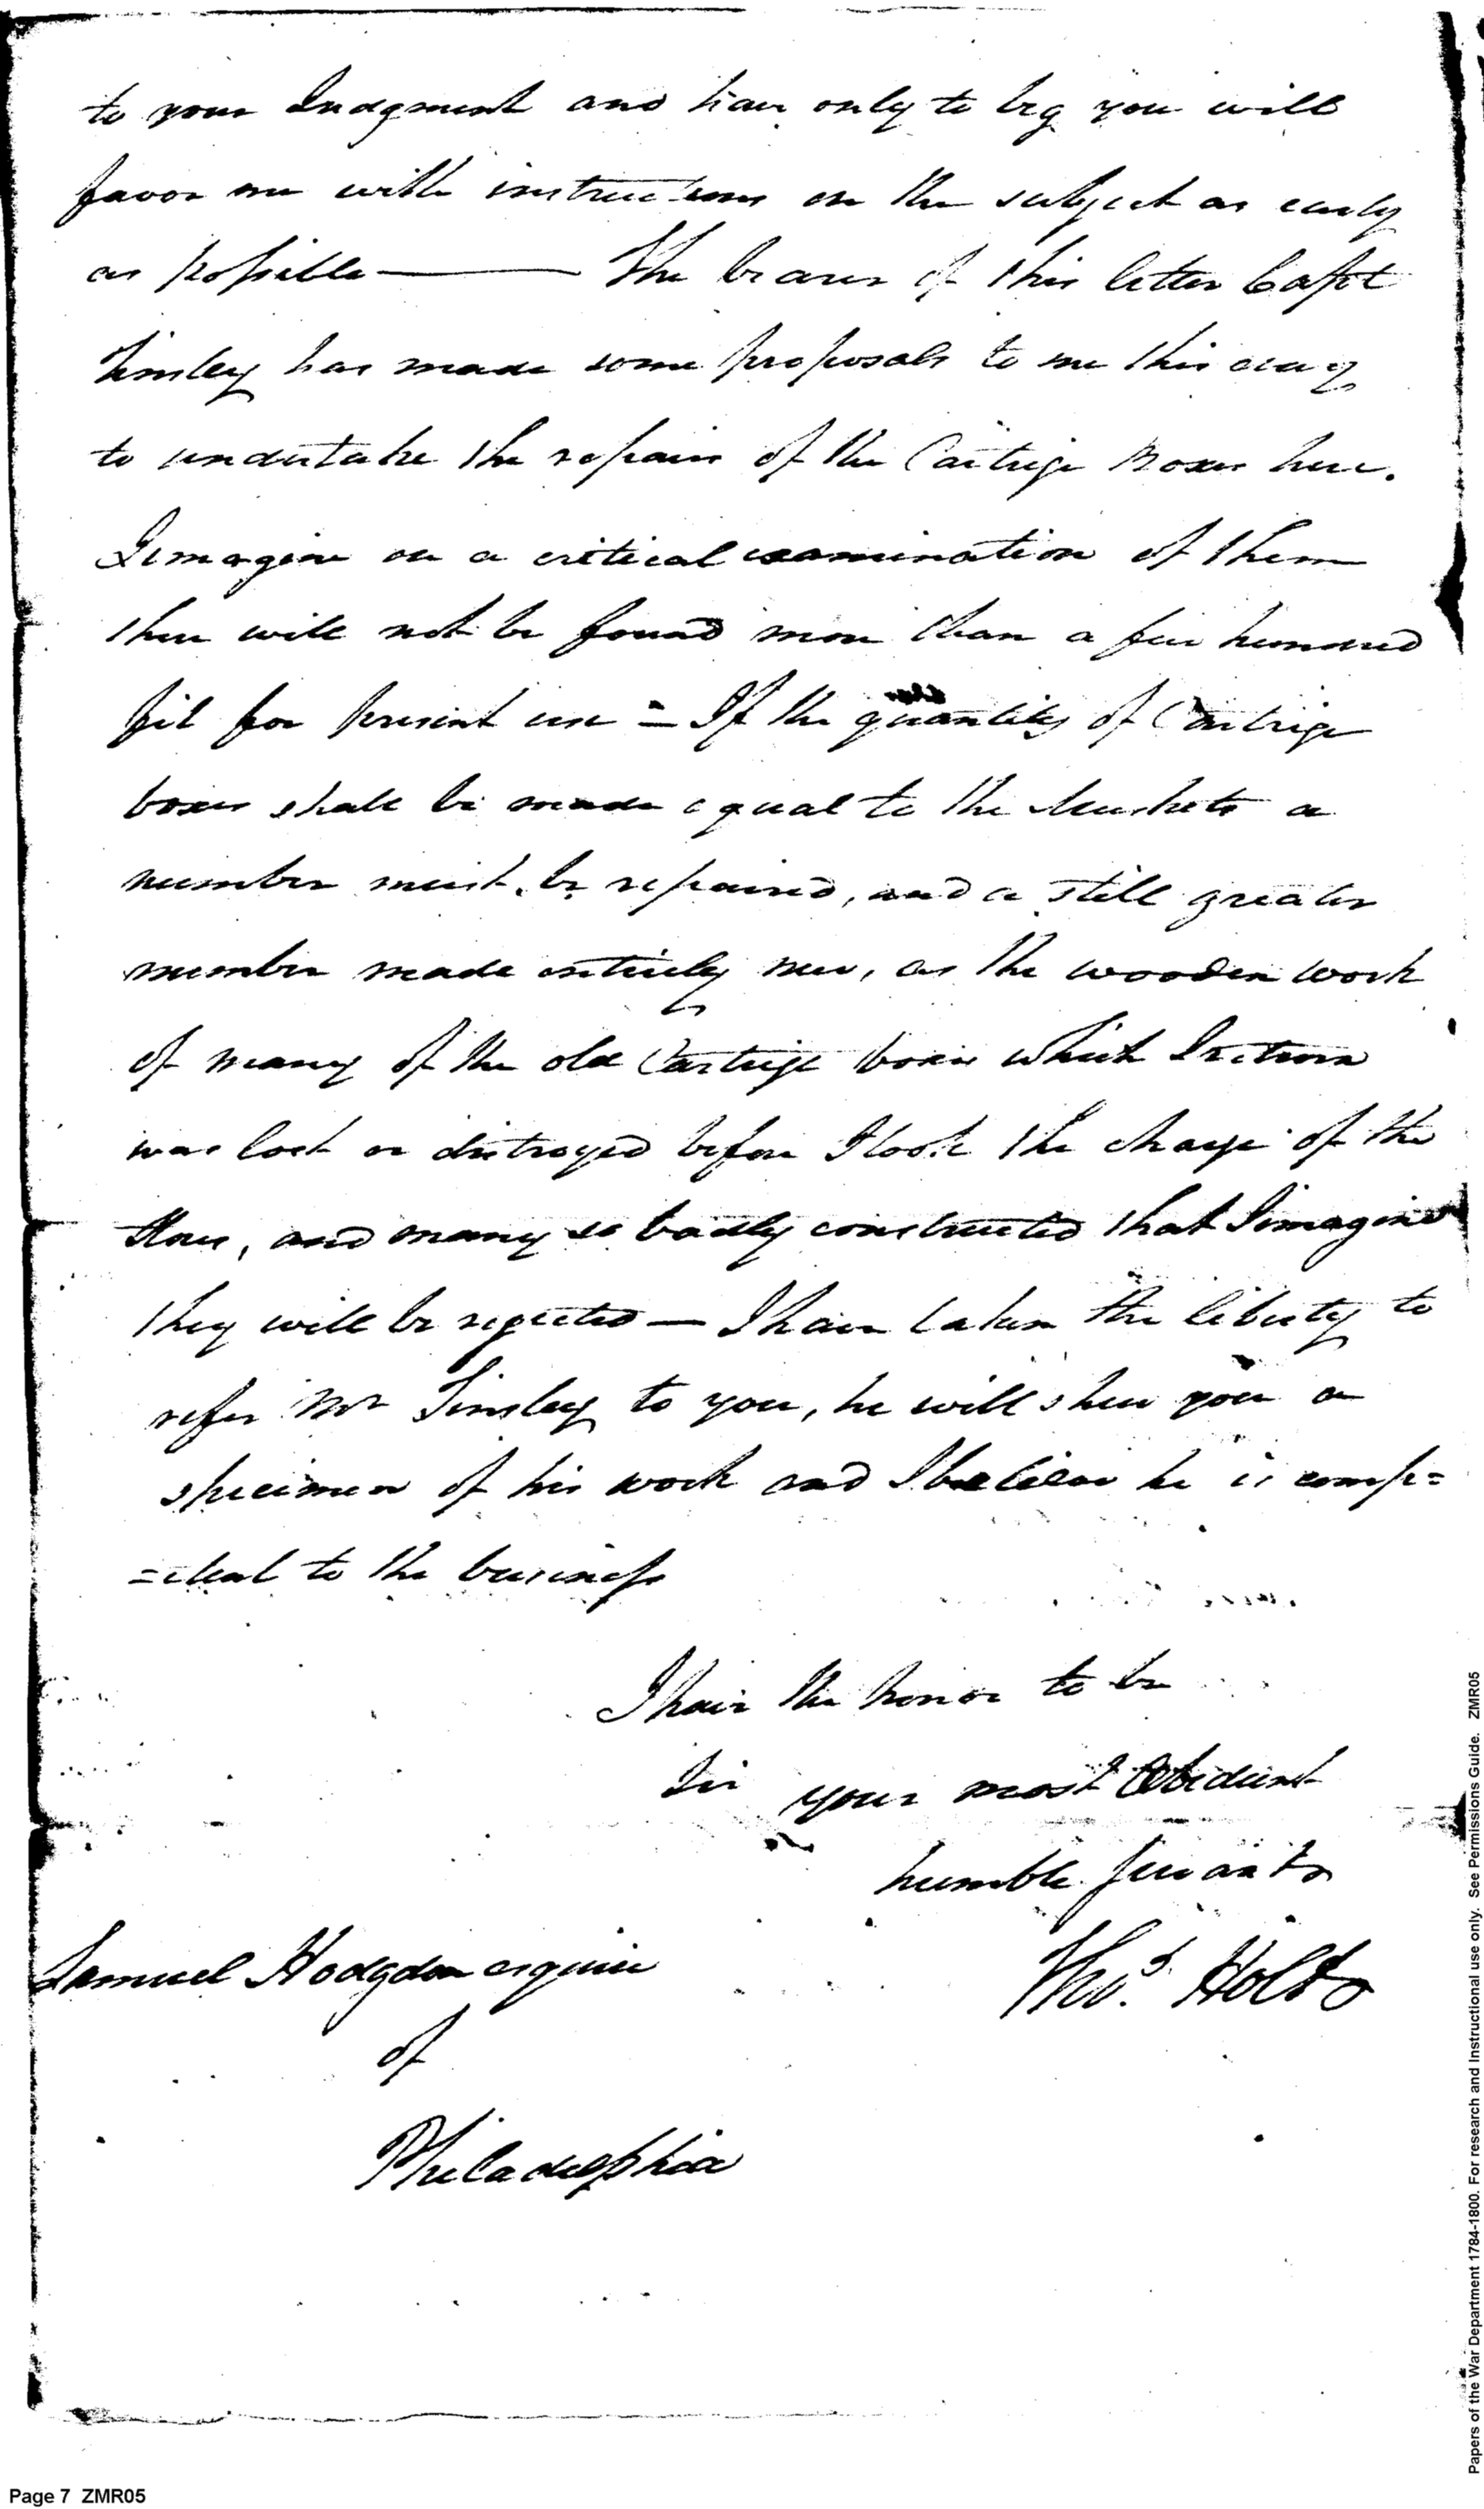 to your Judgment and have only to beg you will
favor me with instructions on the subject as early
as possible — The bearer of this letter Capt
Tinsley has made some proposals to me this day
to undertake the repair of the Cartrige Boxes here.
I imagine on a critical examination of them
there will not be found more than a few hunnred
fit for present use = If the quantity of Cartrige
boxes shall be made equal to the Muskets a
number must be repaired, and a still greater
number made entirely new, as the wooden work
of many of the old Cartrige boxes which I return
was lost or distroyed before I took the charge of the
Stores, and many so badly constructed that I imagine
they will be rejected — I have taken the liberty to
refer Mr Tinsley to you, he will shew you a
specimen of his work and I believe he is comp=
=etent to the business
I have the honor to be
Sir your most Obedient
humble Servant
Samuel Hodgdon esquire
Thos. Holt
of
Philadelphia
Page 7 ZMR05
Papers of the War Department 1784-1800. For research and Instructional use only. See Permissions Guide. ZMR05